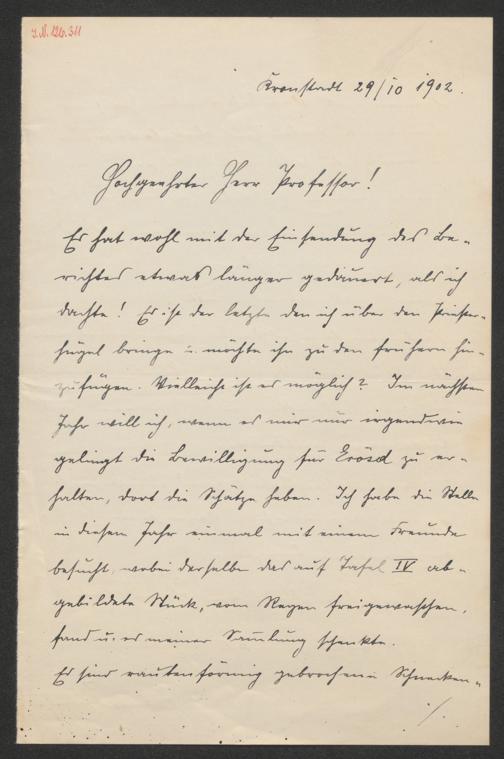 I.N. 126.311
Kronstadt 29/10 1902.
Hochgeehrter Herr Professor!
Es hat wohl mit der Einsendung des Be-
richtes etwas länger gedauert, als ich
dachte! Es ist der letzte den ich über den Priester-
hügel bringe u. möchte ihn zu den frühern hin-
zufügen. Vielleicht ist es möglich? Im nächsten
Jahr will ich, wenn es mir nur irgendwie
gelingt die Bewilligung für Erösd zu er-
halten, dort die Schätze heben. Ich habe die Stelle
in diesem Jahr einmal mit einem Freunde
besucht, wobei derselbe das auf Tafel IV ab-
gebildete Stück, vom Regen freigewaschen,
fand u. es meiner Sammlung schenkte.
Es sind rautenförmig gebrochene Schnecken-
./.